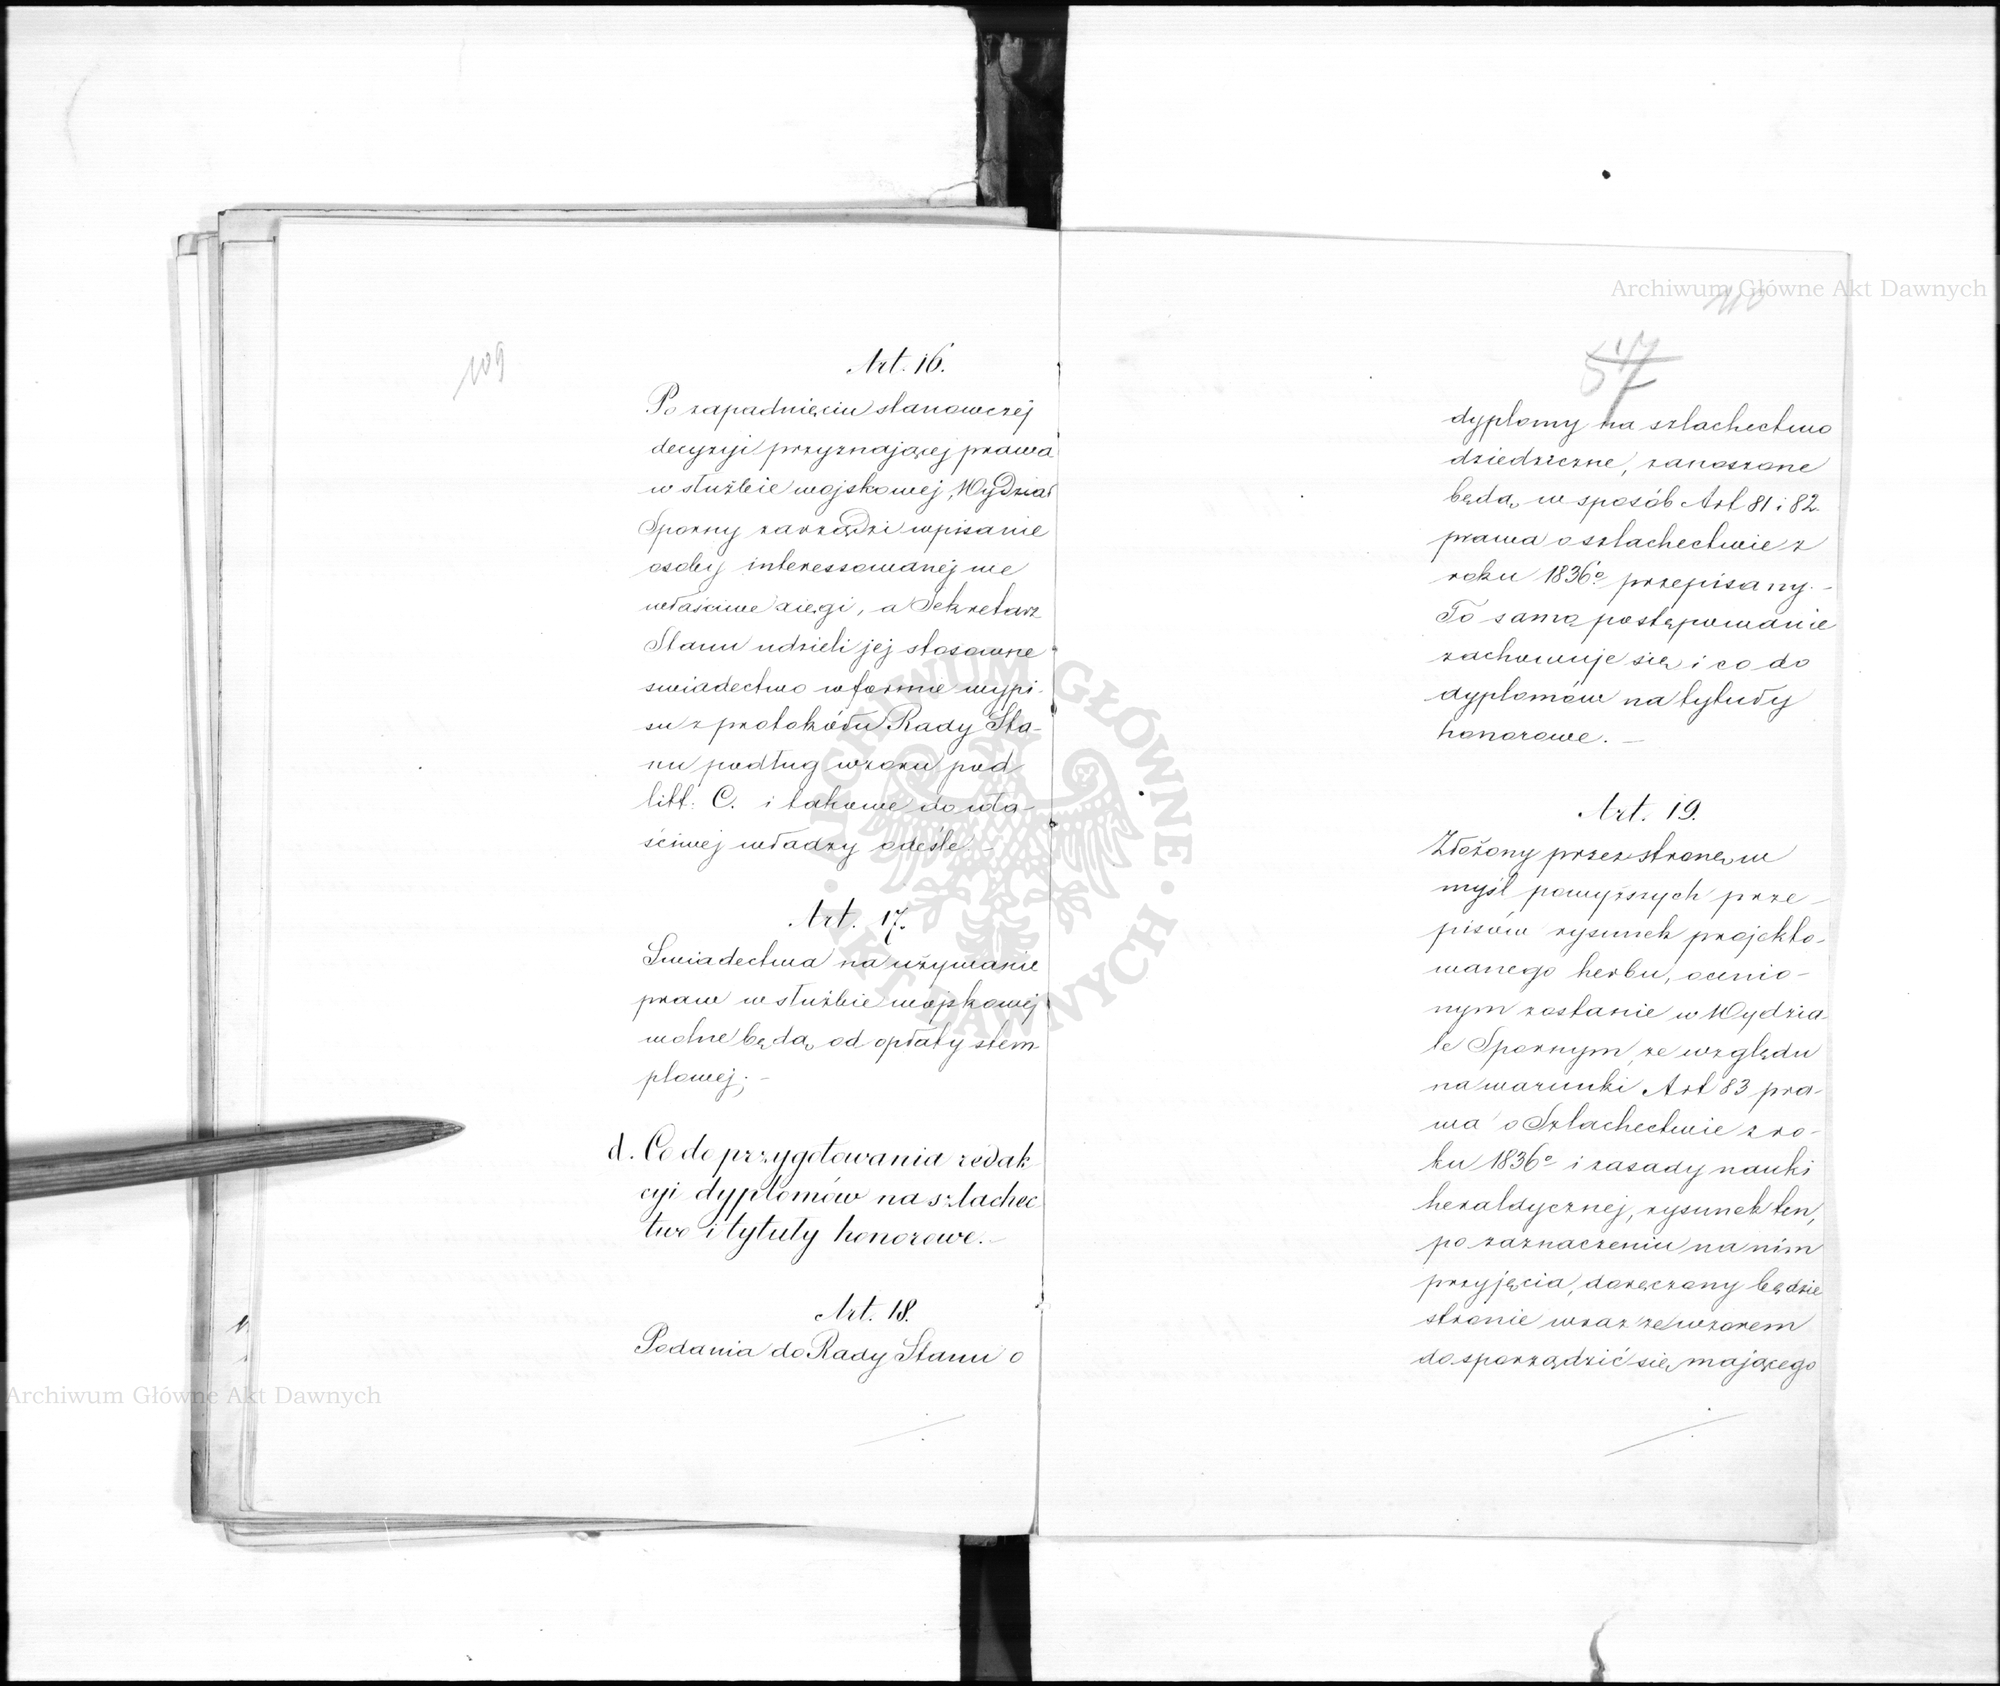 109
Art. 16.
Po zapadnięciu stanowczej
decyzyi przyznającej prawa
w służbie wojskowej, Wydział
Sporny zarządzi wpisanie
osoby interessowanej we
właściwe xięgi, a Sekretarz
Stanu udzieli jej stosowne
swiadectwo w formie wypi-
su z protokółu Rady Sta-
nu podług wzoru pod
litt: C. i takowe do wła-
ściwej władzy odeśle. –
Art. 17.
Swiadectwa na używanie
praw w służbie wojskowej
wolne będą od opłaty stem-
plowej; –
d. Co do przygotowania redak-
cyi dyplomów na szlachec-
two i tytuły honorowe. –
Art. 18.
Podania do Rady Stanu o
110
57
dyplomy na szlachectwo
dziedziczne, zanoszone
będą w sposób Art 81 i 82.
prawa o szlachectwie z
roku 1836º przepisany. –
To samo postępowanie
zachowuje się i co do
dyplomów na tytuły
honorowe. –
Art. 19.
Złożony przez stronę w
myśl powyższych prze-
pisów rysunek projekto-
wanego herbu, ocenio-
nym zostanie w Wydzia-
le Spornym, ze względu
na warunki Art 83 pra-
wa o Szlachectwie z ro-
ku 1836º i zasady nauki
heraldycznej, rysunek ten,
po zaznaczeniu na nim
przyjęcia, doręczony będzie
stronie wraz ze wzorem
do sporządzić się mającego
Archiwum Główne Akt Dawnych
Archiwum Główne Akt Dawnych
ARCHIWUM GŁÓWNE AKT DAWNYCH